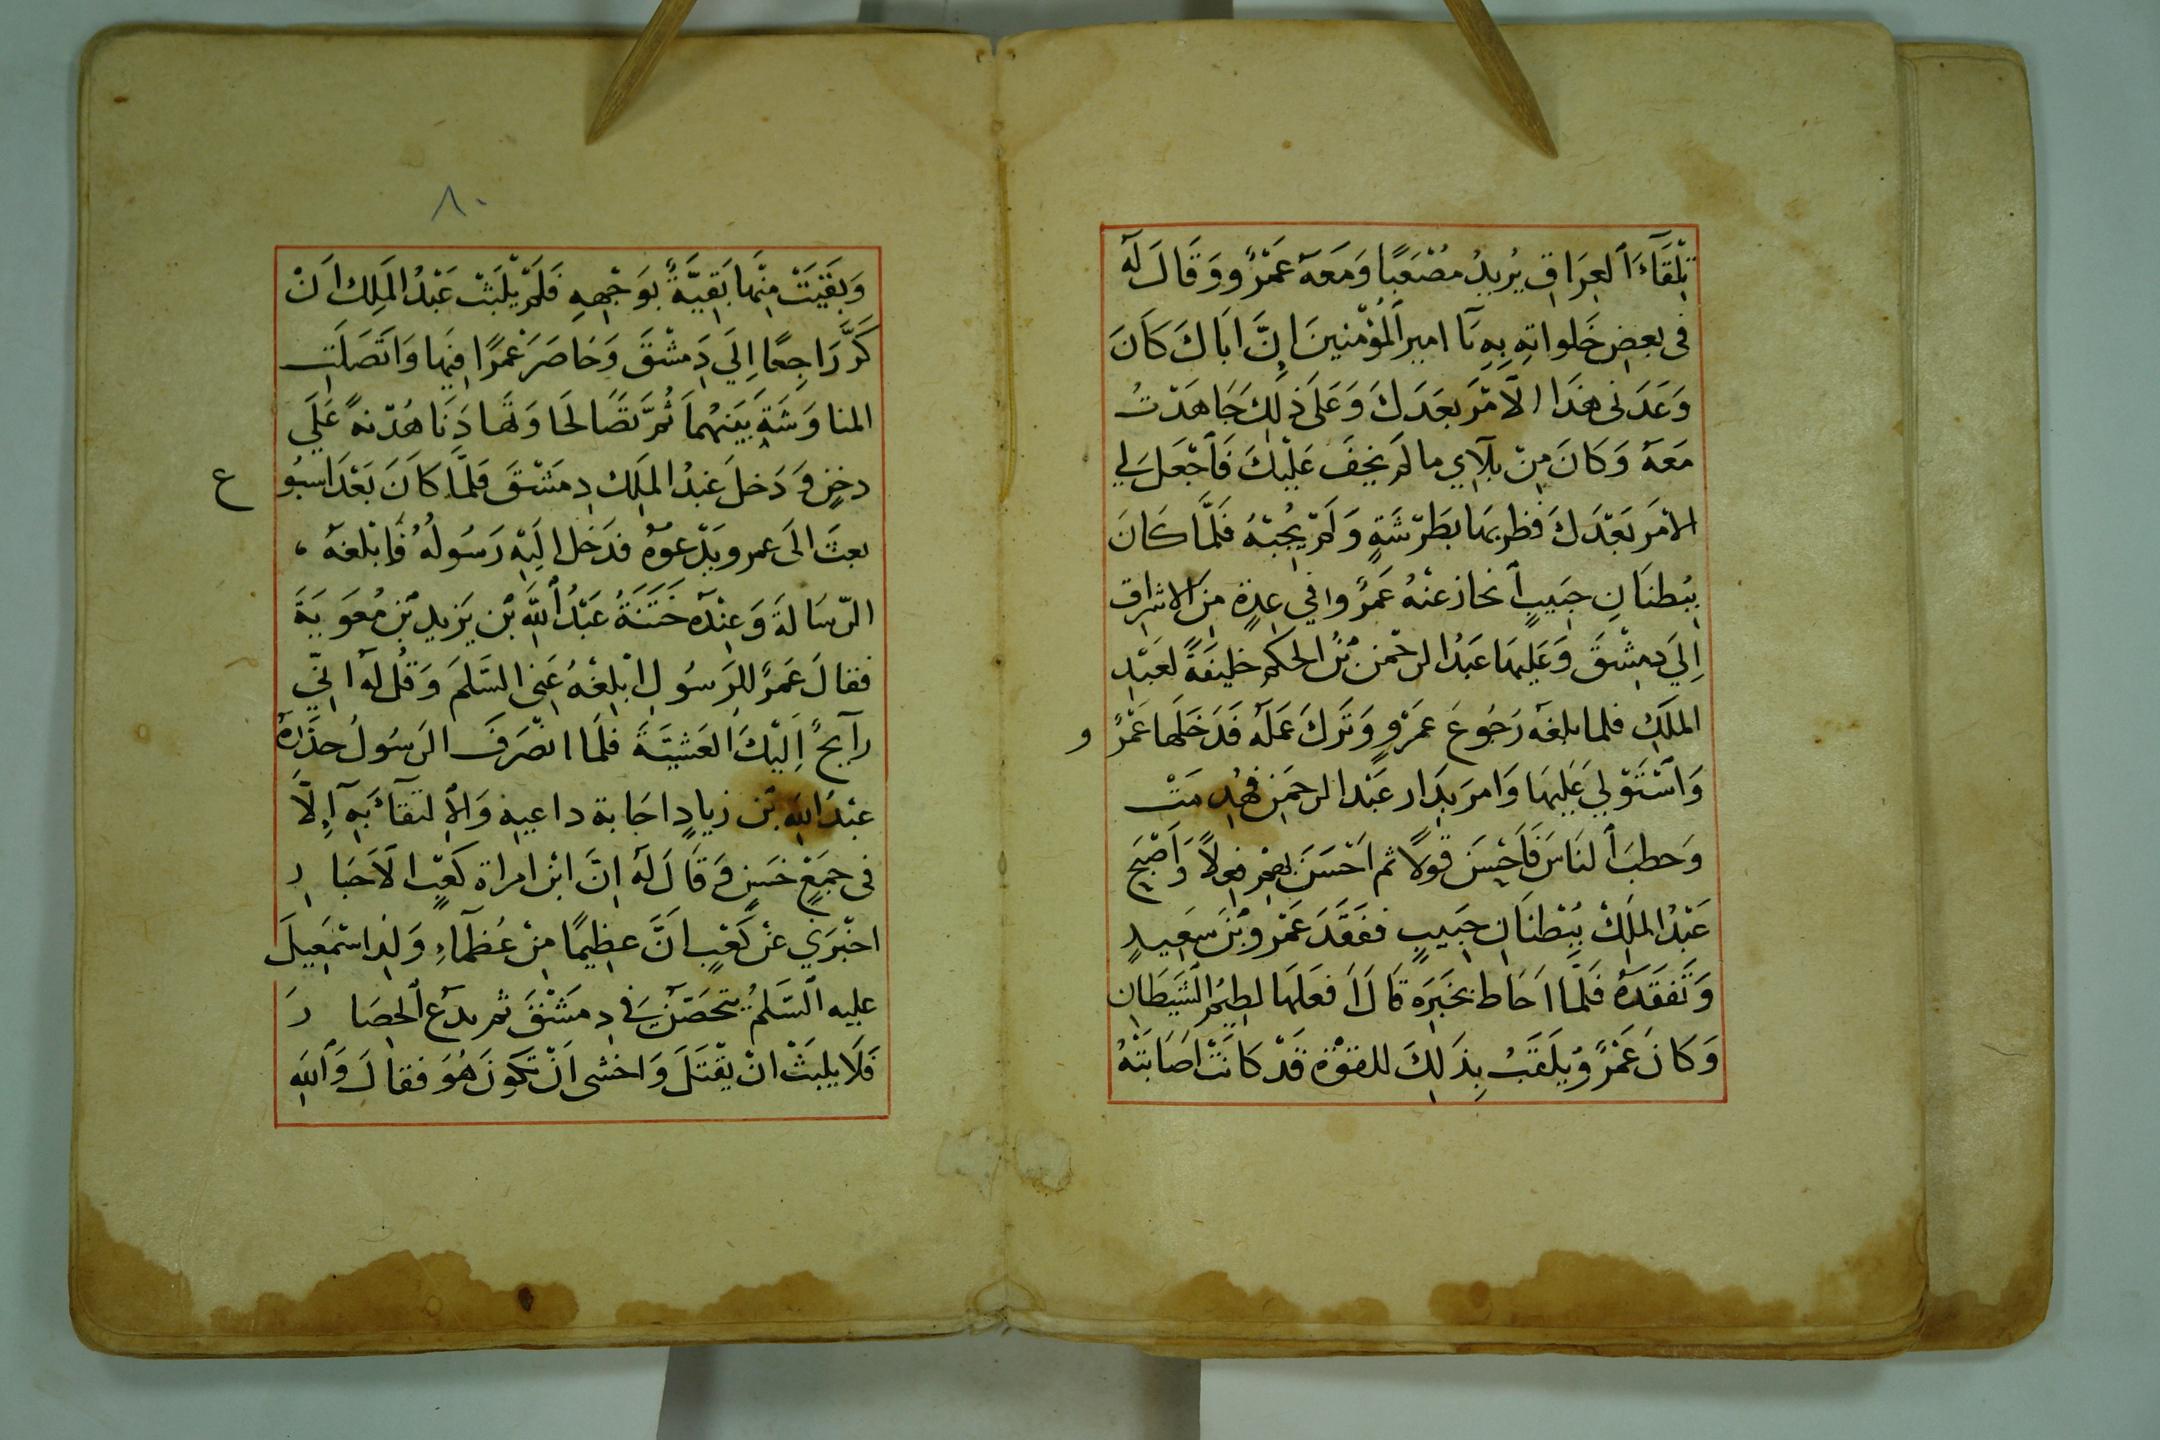 تِلْقَآءَ ٱلعِرَاقِ يُرِيدُ مُصْعَبًا وَمَعَهُ عَمْرٌو وَقَالَ لَهُ
فى بعضِ خَلواتِهِ بِهِ يَآ اميرَ ٱلمُؤْمِنينَ اِنَّ اَبَاكَ كَانَ
وَعَدَنى هَذَا الَامْرَ بَعَدَكَ وَعَلَى ذٰلِكَ جَاهَدْتُ
مَعَهُ وَكَانَ مِنْ بَلَآئِي ما لَمْ يَخِفَ عَلَيْكَ فَٱجْعَل لِي
الامْرَ بَعْدَكَ فطربها بطَرْشَةٍ وَلَمْ يُجِبْهُ فَلَمَّا كَانَ
بِبُطنَانِ حَبيبٍ ٱنحاز عَنْهُ عَمْرٌو افي عِدةٍ مِنَ الاشراف
اِلَي دِمِشْقَ وَعَلِيهَا عَبْدُ الرحْمن بْنُ الحكم خليفَةً لعَبْدِ
الملَكِ فلما بلغه رَجُوعَ عمَرْوٍ وَتَرَكَ عَمَلَهُ فَدَخَلَها عَمْرٌ و
وَاَسْتَوْلِي عَلَيهَا وَامَرَ بدَار عَبْد الرحمَنِ فهُدِمَتْ
وَخطبَ ٱلنَاسَ فَاَحْسَنَ قولًا ثم اَحْسَنَ بهم فِعلًا وَاَصْبَحَ
عَبْدُ المَلِكْ بِبُطْنَانِ حَبيبٍ ففَقَدَ عَمْرو بْنَ سَعِيدٍ
وَتَفقَدَهُ فَلَمَّا اَحَاط بخَبَرِه قَالَ اَفعَلَهَا لطيمُ الشَيَطَانِ
وَكانَ عَمْرٌو يُلَقَبُ بِذَلِكَ للقوْة قَدْ كَانَتْ اَصَابَتْهُ
٨٠
وَبقيَتْ مِنْهَا بَقِيَّةٌ بوَجْهِهِ فَلَمْ يَلْبَثْ عَبْدُ المَلِك اَنْ
كَرَّ رَاجِعًا اِلَي دِمشْقَ وَحَاصَرَ عَمرًا فِيهَا وَاتَصَلَتِ
المناوَشَة بَيَنهُما ثُمَّ تصَالحَا وَتهَادَنَا هُدْنةً عَلَي
دخنٍ وَدَخلَ عَبْدُ المَلِك دِمَشْقَ فَلَمَّا كَانَ بَعْدَ اسبُو ع
بعثَ الَى عمرو يَدْعوْهُ فدَخل اليْه رَسُولُهُ فَابْلغهُ
الرّسَالةَ وَعِنْدَه خَتَنَهُ عَبْدُ ٱللَّهِ بْن يَزِيد بْن مُعَوِيَةَ
فقالَ عَمرٌ للرَسُولِ ابْلِغْهُ عَنِى السَلَمَ وَقُل لهُ انّي
رآيحٌ اِلَيْكَ العَشيَّةَ فلَمَا انْصَرَفَ الرَسُولُ حذَّرَهُ
عبْدُ اللهِ بْن زيادٍ اجَابة داعيهِ وَالالتقآئَ بِهِ اِلَّا
فى جمَعٍ خَسَنٍ وَقَالَ لهُ اِنَّ ابْن امراة كَعْبِ الاَحَبَا رِ
اخْبَرَنِي عَنْ كَعْبٍ اَنَّ عظِيمًا مِنْ عُظَمآءِ وَلدِ اسْمَعِيلَ
عليه ٱلسَلمُ يتحَصَنُ في دِمَشْقَ ثم يدَعُ الحِصَا رَ
فَلَا يلبَثْ انْ يقْتَلَ وَاخشى اَنْ تَكوَنَ هُوَ فقالَ وَاللهِ